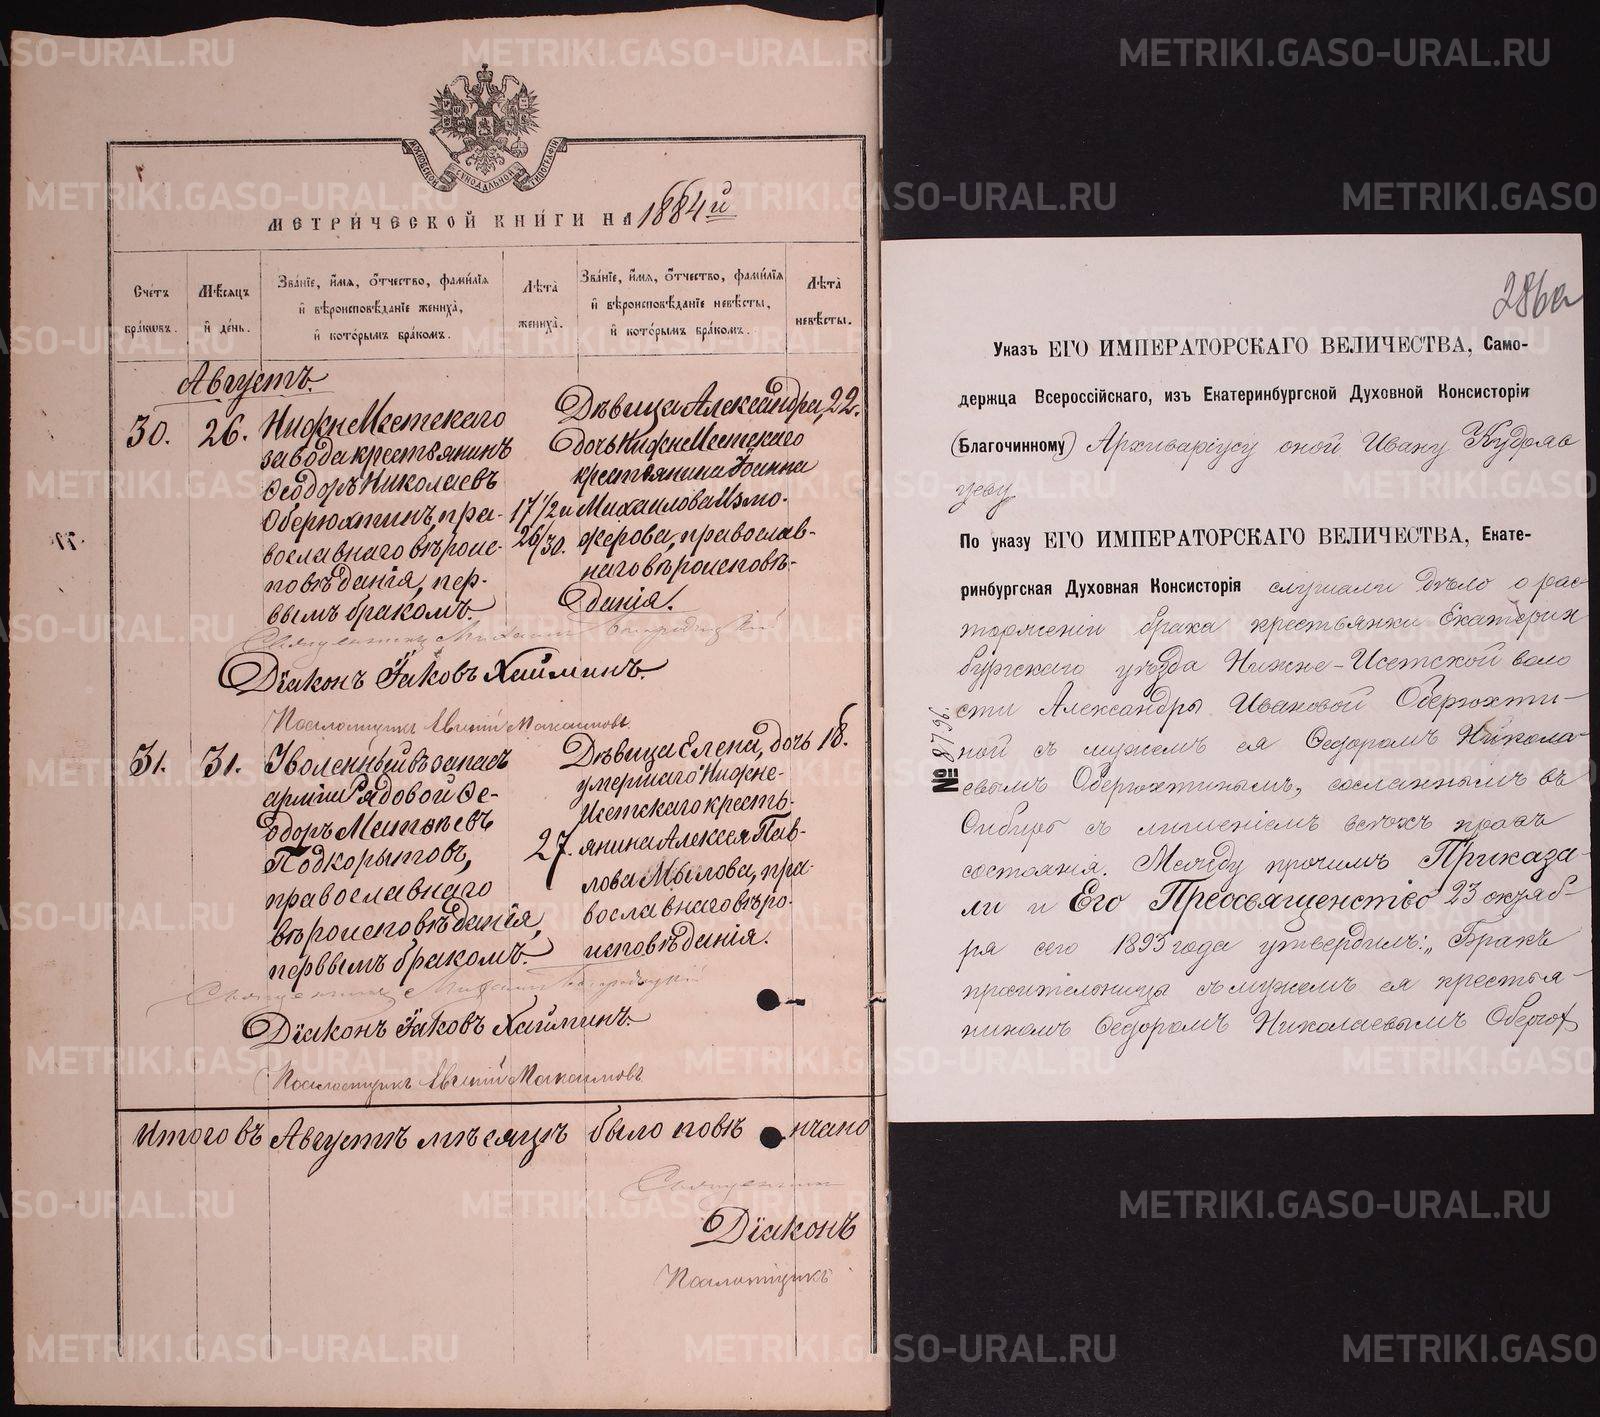 МОСКОВСКОЙ СѴНОДАЛЬНОЙ ТИПОГРАФІИ
МЕТРИ́ЧЕСКОЙ КНИ́ГИ НА 1884 й
Сче́тъ бра́ковъ.
Мѣ́сяцъ и де́нь.
Зва́нїе, и́мя, о́тчество, фами́лїя
и вѣроисповѣ́данїе жениха̀,
и кото́рымъ бра́комъ.
Лѣта̀ жениха̀.
Зва́нїе, и́мя, о́тчество, фами́лїя
и вѣроисповѣ́данїе невѣ́сты,
и кото́рымъ бра́комъ.
Лѣта̀ невѣ́сты.
Августъ.
30. 26.
Нижне Исетскаго
завода крестьянинъ
Ѳеодоръ Николаевъ
Оберюхтинъ, пра-
вославнаго вѣроис-
повѣданія, пер-
вымъ бракомъ.
17 1/2 и
26/30.
Дѣвица Александра,
дочь Нижне Исетскаго
крестьянина Іоанна
Михаилова Измо-
жерова, православ-
наго вѣроисповѣ-
данія.
22.
Священникъ Михаилъ
Діаконъ Іаковъ Хайминъ.
Псаломщикъ Евгеній Максимовъ
31. 31.
Уволенный въ запасъ
арміи Рядовой Ѳе-
одоръ Матѳѣевъ
Подкорытовъ,
православнаго
вѣроисповѣданія,
первымъ бракомъ.
27.
Дѣвица Елена, дочь
умершаго Нижне-
Исетскаго кресть-
янина Алексея Пав-
лова Мылова, пра-
вославнаго вѣро-
исповѣданія.
18.
Священникъ Михаилъ
Діаконъ Іаковъ Хайминъ.
Псаломщикъ Евгеній Максимовъ
Итого въ Августѣ мѣсяцѣ было повѣнчано
Священникъ
Діаконъ
Псаломщикъ
286а
Указъ ЕГО ИМПЕРАТОРСКАГО ВЕЛИЧЕСТВА, Само-
держца Всероссійскаго, изъ Екатеринбургской Духовной Консисторіи
(Благочинному) Архиваріусу оной Ивану Кудряв
цеву
По указу ЕГО ИМПЕРАТОРСКАГО ВЕЛИЧЕСТВА, Екате-
ринбургская Духовная Консисторія слушали дѣло о рас
торженіи брака крестьянки Екатерин
бургскаго уѣзда Нижне-Исетской воло
сти Александры Ивановой Оберюхти-
ной съ мужемъ ея Ѳедоромъ Никола-
евымъ Оберюхтинымъ, сосланнымъ въ
Сибирь съ лишеніемъ всѣхъ правъ
состоянія. Между прочимъ Приказа-
ли и Его Преосвященство 23 октяб-
ря сего 1893 года утвердилъ: „Бракъ
просительницы съ мужемъ ея крестья-
ниномъ Ѳедоромъ Николаевымъ Оберюх
№ 8796.
METRIKI.GASO-URAL.RU